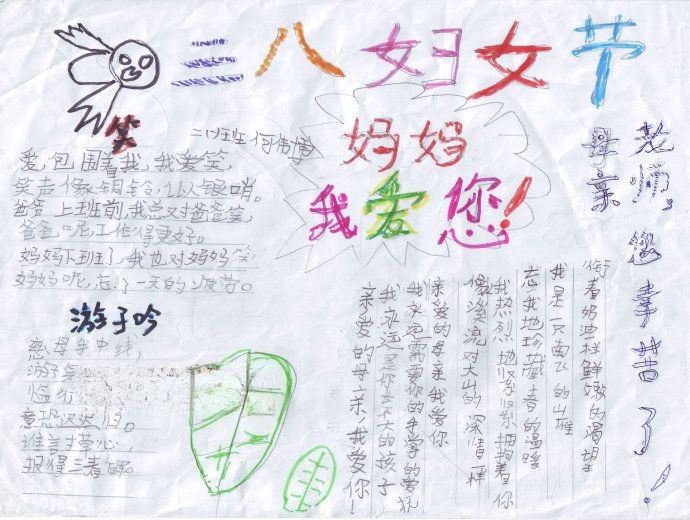 三八妇女节
妈妈
我爱您!
笑
二(1)班 何伟博
爱,包围着我,我爱笑,
笑声像银铃,似银哨。
爸爸上班前,我总对爸爸笑,
爸爸呢,工作得更好。
妈妈下班了,我也对妈妈笑
妈妈呢,忘了一天的疲劳。
游子吟
慈母手中线,
游子身
临行
意恐迟迟归。
谁言寸草心,
报得三春晖。
母亲
您辛苦了!
衔着奶油样鲜嫩的渴望
我是一只南飞的山雀
忘我地珍藏春的温暖
我热烈地紧紧拥抱着你
像溪流对大山的深情一样
亲爱的母亲我爱你
我永远需要你的手掌的爱抚
我永远是你长不大的孩子
亲爱的母亲,我爱你!